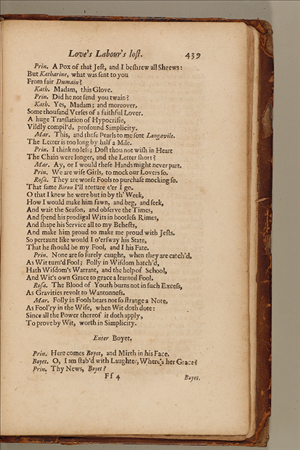 Love's Labour's lost. 439
Prin. A Pox of that Jest, and I beshrew all Shrews:
But Katharine, what was sent to you
From fair Dumain?
Kath. Madam, this Glove.
Prin. Did he not send you twain?
Kath. Yes, Madam; and moreover,
Some thousand Verses of a faithful Lover.
A huge Translation of Hypocrisie,
Vildly compil'd, profound Simplicity.
Mar. This, and these Pearls to me sent Longavile.
The Letter is too long by half a Mile.
Prin. I think no less; Dost thou not wish in Heart
The Chain were longer, and the Letter short?
Mar. Ay, or I would these Hands might never part.
Prin. We are wise Girls, to mock our Lovers so.
Rosa. They are worse Fools to purchase mocking so.
That same Biron I'll torture e'er I go.
O that I knew he were but in by th' Week,
How I would make him fawn, and beg, and seek,
And wait the Season, and observe the Times,
And spend his prodigal Wits in bootless Rimes,
And shape his Service all to my Behests,
And make him proud to make me proud with Jests.
So pertaunt like would I o'ersway his State,
That he should be my Fool, and I his Fate.
Prin. None are so surely caught, when they are catch'd,
As Wit turn'd Fool; Folly in Wisdom hatch'd,
Hath Wisdom's Warrant, and the help of School,
And Wit's own Grace to grace a learned Fool.
Rosa. The Blood of Youth burns not in such Excess,
As Gravities revolt to Wantonness.
Mar. Folly in Fools bears not so strange a Note,
As Fool'ry in the Wise, when Wit doth dote:
Since all the Power thereof it doth apply,
To prove by Wit, worth in Simplicity.
Enter Boyet.
Prin. Here comes Boyet, and Mirth in his Face.
Boyet. O, I am stab'd with Laughter, Where's her Grace?
Prin. Thy News, Boyet?
Ff 4 Boyet.